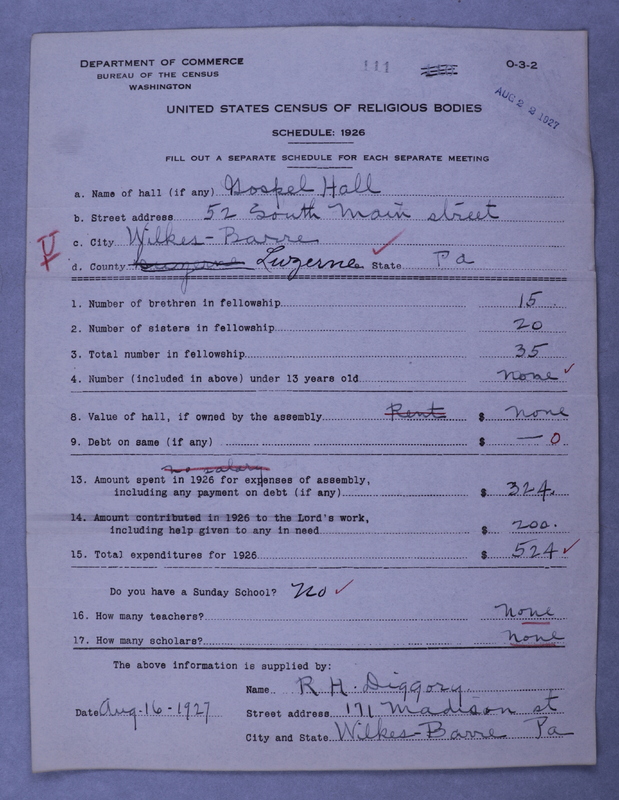 DEPARTMENT OF COMMERCE
BUREAU OF THE CENSUS
WASHINGTON
111
O-3-2
AUG 23 1927
UNITED STATES CENSUS OF RELIGIOUS BODIES
SCHEDULE: 1926
FILL OUT A SEPARATE SCHEDULE FOR EACH SEPARATE MEETING
a. Name of hall (if any) Gospel Hall
b. Street address 52 South Main street
c. City Wilkes-Barre
d. County Luzerne State Pa
1. Number of brethren in fellowship 15
2. Number of sisters in fellowship 20
3. Total number in fellowship 35
4. Number (included in above) under 13 years old none
8. Value of hall, if owned by the assembly Rent $ none
9. Debt on same (if any) $ — 0
no salary
13. Amount spent in 1926 for expenses of assembly,
including any payment on debt (if any) $ 324.
14. Amount contributed in 1926 to the Lord's work,
including help given to any in need $ 200.
15. Total expenditures for 1926 $ 524
Do you have a Sunday School? No
16. How many teachers? none
17. How many scholars? none
The above information is supplied by:
Name R H. Diggory
Date Aug-16-1927 Street address 171 Madison st
City and State Wilkes-Barre Pa